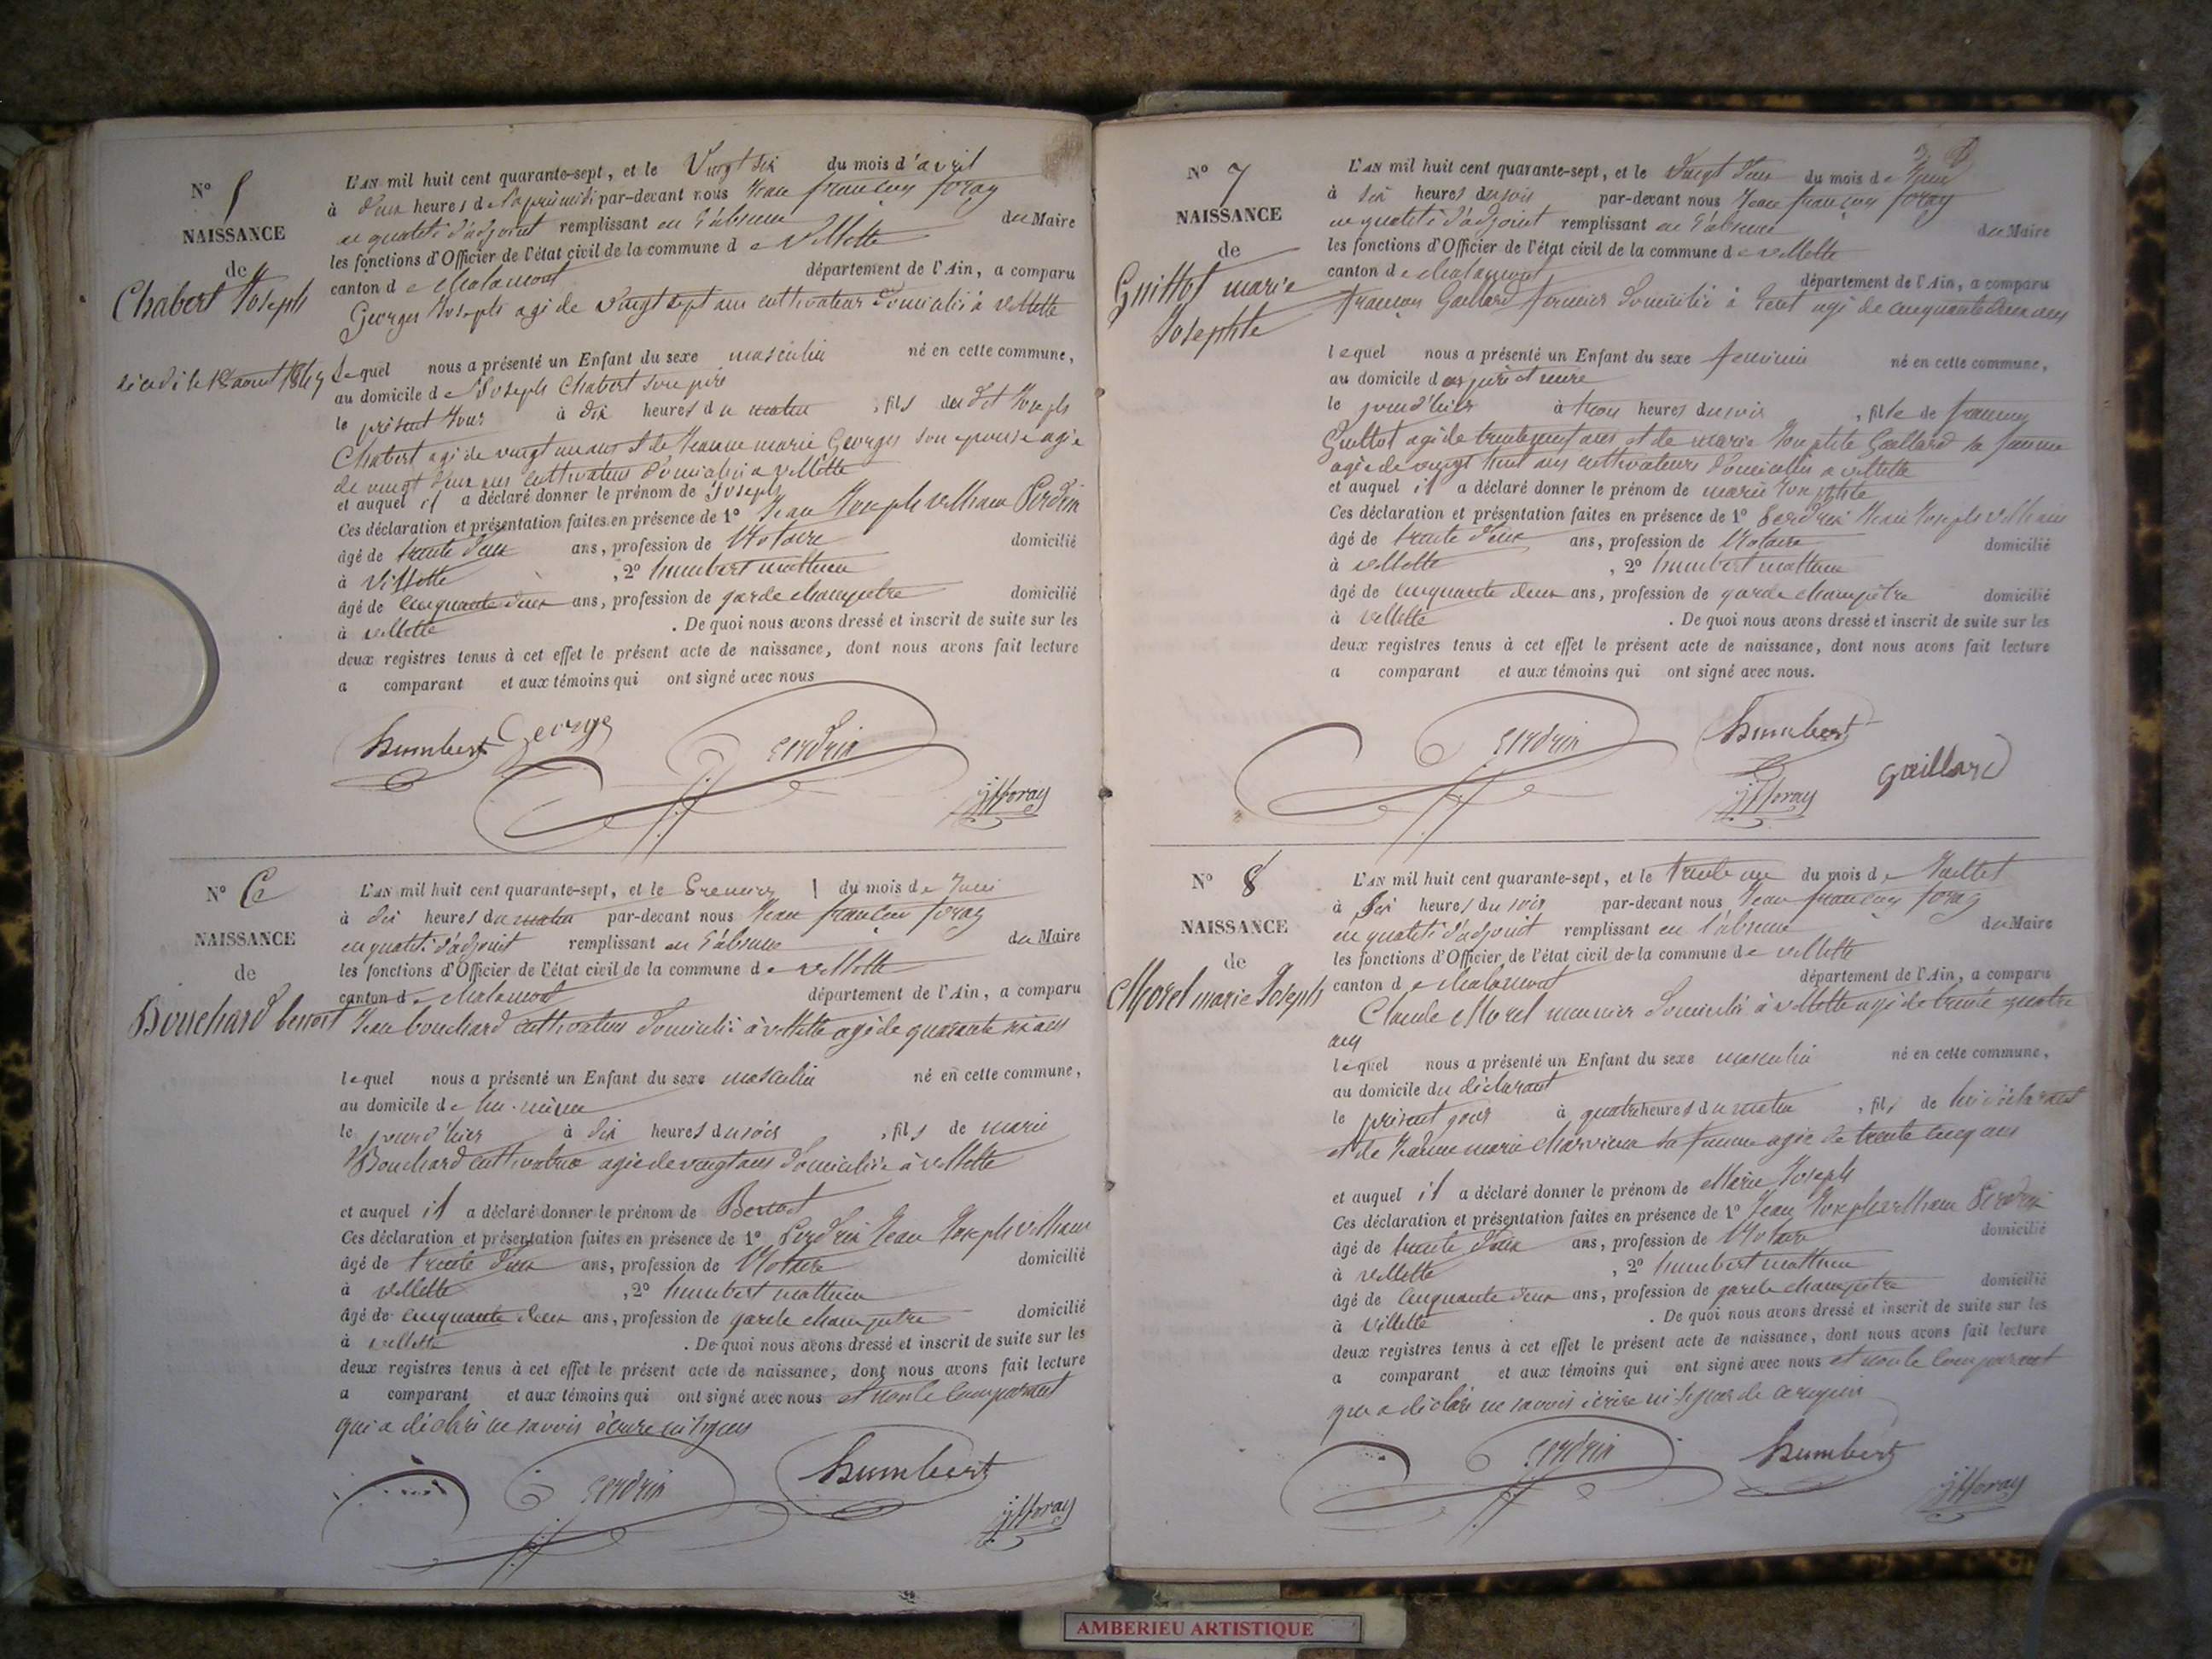 N° 5
NAISSANCE
de
Chabert Joseph
décédé le 12 aout 1847
L'AN mil huit cent quarante-sept, et le Vingt six du mois d'avril
à deux heures de l'après midi par-devant nous Jean françois foray
en qualité d'adjoint remplissant en l'absence du Maire
les fonctions d'Officier de l'état civil de la commune de Villette
canton de Chalamont département de l'Ain, a comparu
Georges Joseph agé de vingt sept ans cultivateur domicilié à villette
lequel nous a présenté un Enfant du sexe masculin né en cette commune,
au domicile de Joseph Chabert son père
le présent jour à dix heures du matin, fils du dit Joseph
Chabert agé de vingt un ans et de Jeanne marie Georges son epouse agée
de vingt deux ans cultivateurs domiciliés à villette
et auquel il a déclaré donner le prénom de Joseph
Ces déclaration et présentation faites en présence de 1° Jean Joseph Perdrix
âgé de trente deux ans, profession de Notaire domicilié
à Villette, 2° humbert mathieu
âgé de cinquante deux ans, profession de garde champetre domicilié
à villette. De quoi nous avons dressé et inscrit de suite sur les
deux registres tenus à cet effet le présent acte de naissance, dont nous avons fait lecture
a comparant et aux témoins qui ont signé avec nous
humbert George Perdrix
jf foray
N° 6
NAISSANCE
de
Bouchard benoit
L'AN mil huit cent quarante-sept, et le Premier du mois de Juin
à dix heures du matin par-devant nous Jean françois foray
en qualité d'adjoint remplissant en l'absence du Maire
les fonctions d'Officier de l'état civil de la commune de villette
canton de Chalamont département de l'Ain, a comparu
Jean bouchard cultivateur domicilié à villette agé de quarante six ans
lequel nous a présenté un Enfant du sexe masculin né en cette commune,
au domicile de lui-même
le jour d'hier à dix heures du soir, fils de marie
Bouchard cultivatrice agée de vingt ans domiciliée à villette
et auquel il a déclaré donner le prénom de Benoit
Ces déclaration et présentation faites en présence de 1° Perdrix Jean Joseph
âgé de trente deux ans, profession de Notaire domicilié
à villette, 2° humbert mathieu
âgé de cinquante deux ans, profession de garde champetre domicilié
à villette. De quoi nous avons dressé et inscrit de suite sur les
deux registres tenus à cet effet le présent acte de naissance, dont nous avons fait lecture
a comparant et aux témoins qui ont signé avec nous et non le comparant
qui a déclaré ne savoir écrire ni signer
Perdrix humbert
jf foray
N° 7
NAISSANCE
de
Guittot marie
Josephte
L'AN mil huit cent quarante-sept, et le Vingt deux du mois de Juin
à six heures du soir par-devant nous Jean françois foray
en qualité d'adjoint remplissant en l'absence du Maire
les fonctions d'Officier de l'état civil de la commune de villette
canton de Chalamont département de l'Ain, a comparu
françois Gaillard fermier domicilié à agé de cinquante deux ans
lequel nous a présenté un Enfant du sexe feminin né en cette commune,
au domicile de ses père et mère
le jour d'hier à trois heures du soir, fille de françois
Guittot agé de trente neuf ans et de marie Josephte Gaillard sa femme
agée de vingt huit ans cultivateurs domiciliés à villette
et auquel il a déclaré donner le prénom de marie Josephte
Ces déclaration et présentation faites en présence de 1° Perdrix Jean Joseph
âgé de trente deux ans, profession de Notaire domicilié
à villette, 2° humbert mathieu
âgé de cinquante deux ans, profession de garde champêtre domicilié
à villette. De quoi nous avons dressé et inscrit de suite sur les
deux registres tenus à cet effet le présent acte de naissance, dont nous avons fait lecture
a comparant et aux témoins qui ont signé avec nous.
Perdrix humbert
jf foray gaillard
N° 8
NAISSANCE
de
Morel marie Joseph
L'AN mil huit cent quarante-sept, et le trente un du mois de Juillet
à six heures du soir par-devant nous Jean françois foray
en qualité d'adjoint remplissant en l'absence du Maire
les fonctions d'Officier de l'état civil de la commune de villette
canton de Chalamont département de l'Ain, a comparu
Claude Morel meunier domicilié à villette agé de trente quatre
ans
lequel nous a présenté un Enfant du sexe masculin né en cette commune,
au domicile du déclarant
le présent jour à quatre heures du matin, fils de lui déclarant
et de Jeanne marie Charvieux sa femme agée de trente cinq ans
et auquel il a déclaré donner le prénom de Marie Joseph
Ces déclaration et présentation faites en présence de 1° Jean Joseph Perdrix
âgé de trente deux ans, profession de Notaire domicilié
à villette, 2° humbert mathieu
âgé de cinquante deux ans, profession de garde champetre domicilié
à villette. De quoi nous avons dressé et inscrit de suite sur les
deux registres tenus à cet effet le présent acte de naissance, dont nous avons fait lecture
a comparant et aux témoins qui ont signé avec nous et non le comparant
qui a déclaré ne savoir écrire ni signer de ce requis
Perdrix humbert
jf foray
AMBERIEU ARTISTIQUE